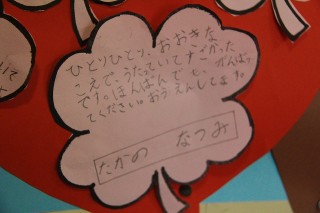 ひとりひとり、おおきな
こえで、うたっていてすごかった
です。ほんばんでも、がんばっ
てください。おうえんしてます。
たかの なつみ